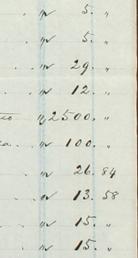 . " 5. "
" 5. "
. " 29. "
. " 12. "
" 2500. "
a. " 100. "
. " 26. 84
. " 13. 58
. . " 15. "
. " 15. "